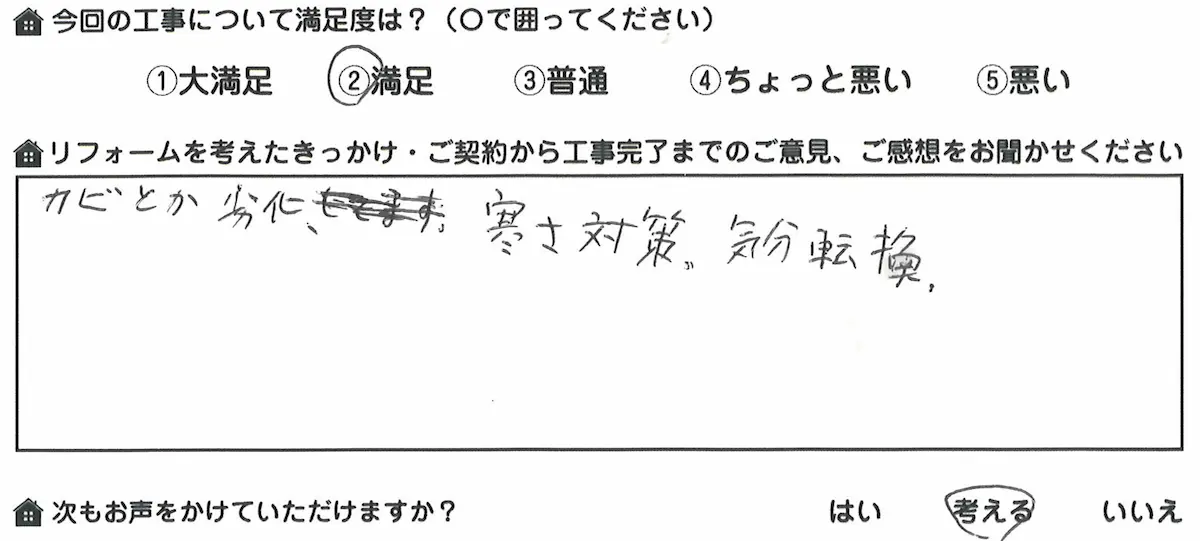 今回の工事について満足度は？（○で囲ってください）
①大満足 ②満足 ③普通 ④ちょっと悪い ⑤悪い
リフォームを考えたきっかけ・ご契約から工事完了までのご意見、ご感想をお聞かせください
カビとか劣化、寒さ対策。気分転換。
次もお声をかけていただけますか？ はい 考える いいえ